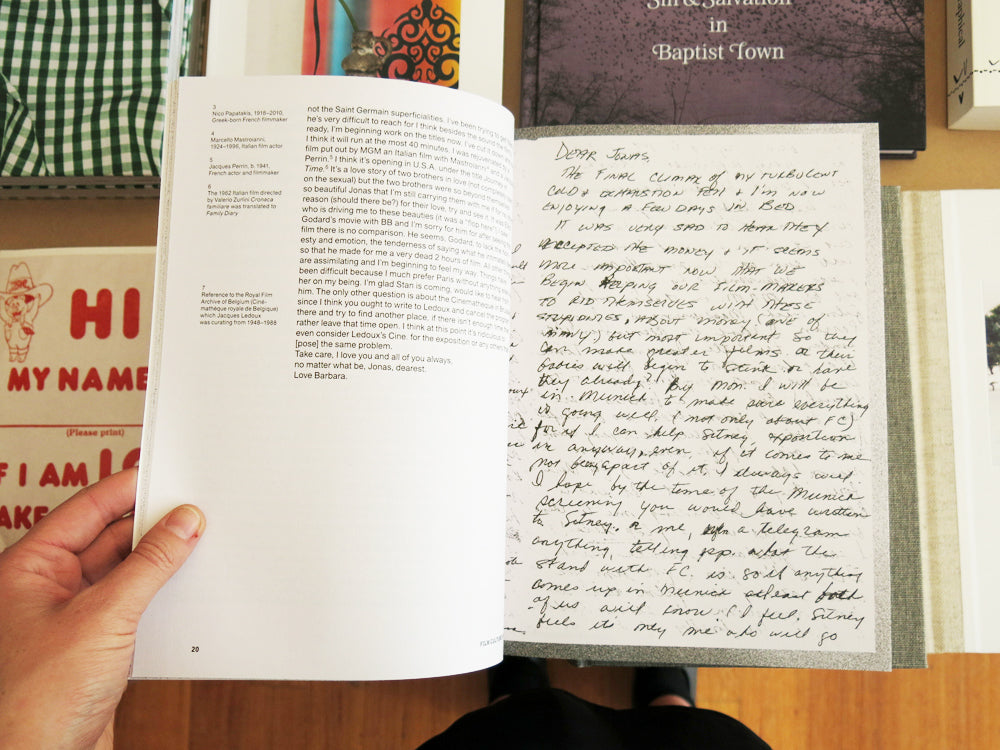 Sin & Salvation
in
Baptist Town
3
Nico Papatakis, 1918–2010,
Greek-born French filmmaker
4
Marcello Mastroianni,
1924–1996, Italian film actor
5
Jacques Perrin, b. 1941,
French actor and filmmaker
6
The 1962 Italian film directed
by Valerio Zurlini Cronaca
familiare was translated to
Family Diary.
7
Reference to the Royal Film
Archive of Belgium (Ciné-
mathèque royale de Belgique)
which Jacques Ledoux
was curating from 1948–1988
not the Saint Germain superficialities. I've been trying to
he's very difficult to reach for I think besides the sound
ready, I'm beginning work on the titles now, I've cut it down
I think it will run at the most 40 minutes. I was
film put out by MGM an Italian film with Mastroianni⁴ and
Perrin.⁵ I think it's opening in U.S.A. under the title
Time.⁶ It's a love story of two brothers in love (not
on the sexual) but the two brothers were so beyond themselves
so beautiful Jonas that I'm still carrying them with me
reason (should there be?) for their love, try and see it. It was
who is driving me to these beauties (it was a "flop here").
Godard's movie with BB and I'm sorry for him for after seeing
film there is no comparison. He seems, Godard, to lack the
esty and emotion, the tenderness of saying what he
so that he made for me a very dead 2 hours of film. All
are assimilating and I'm beginning to feel my way. Things have
been difficult because I much prefer Paris without any
her on my being. I'm glad Stan is coming, would like to hear
him. The only other question is about the Cinematheque
since I think you ought to write to Ledoux and cancel the
there and try to find another place, if there isn't enough time
rather leave that time open. I think at this point it is
even consider Ledoux's Cine. for the exposition or any other
[pose] the same problem.
Take care, I love you and all of you always,
no matter what be, Jonas, dearest.
Love Barbara.
20
FILM CULTURE
DEAR JONAS,
THE FINAL CLIMAX OF MY TURBULENT
COLD & EXHAUSTION FELL & I'M NOW
ENJOYING A FEW DAYS IN BED.
IT WAS VERY SAD TO HEAR THEY
ACCEPTED THE MONEY & IT SEEMS
MORE IMPORTANT NOW THAT WE
BEGIN HELPING OUR FILM-MAKERS
TO RID THEMSELVES WITH THESE
STUPIDITIES, ABOUT MONEY (ONE OF
MANY) but most important so they
can make greater films or their
babies will begin to stink or have
they already?! By Mon. I will be
in Munich to make sure everything
is going well, (not only about FC)
for if I can help Sitney, exposition
in anyway, even if it comes to me
not being apart of it, I always will
I hope by the time of the Munich
screening you would have written
to Sitney, or me, a telegram
anything, telling ppp. what the
stand with FC. is so if anything
comes up in Munich at least both
of us will know. I feel, Sitney
feels its only me who will go
HI
MY NAME
(Please print)
IF I AM LO